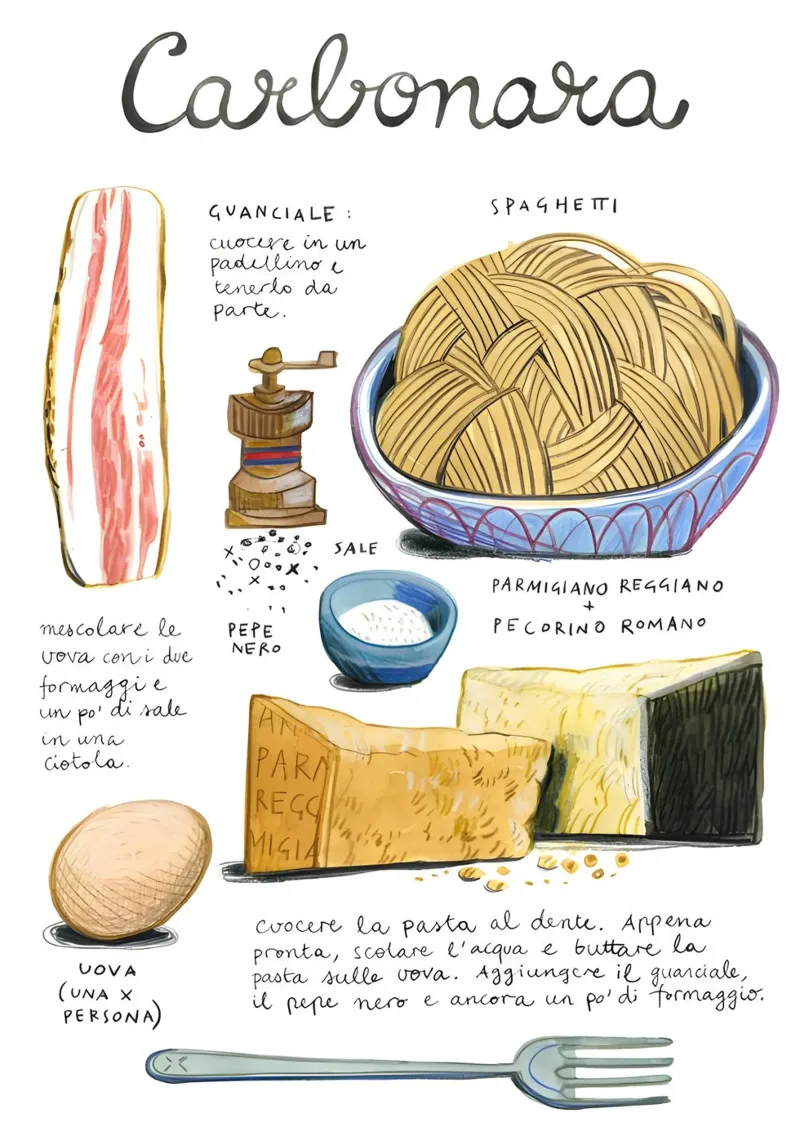 Carbonara
GUANCIALE:
cuocere in un
padellino e
tenerlo da
parte.
SPAGHETTI
SALE
PEPE
NERO
PARMIGIANO REGGIANO
+
PECORINO ROMANO
mescolare le
uova con i due
formaggi e
un po' di sale
in una
ciotola.
AN
PARM
REGG
MIGIA
UOVA
(UNA X
PERSONA)
Cuocere la pasta al dente. Appena
pronta, scolare l'acqua e buttare la
pasta sulle uova. Aggiungere il guanciale,
il pepe nero e ancora un po' di formaggio.